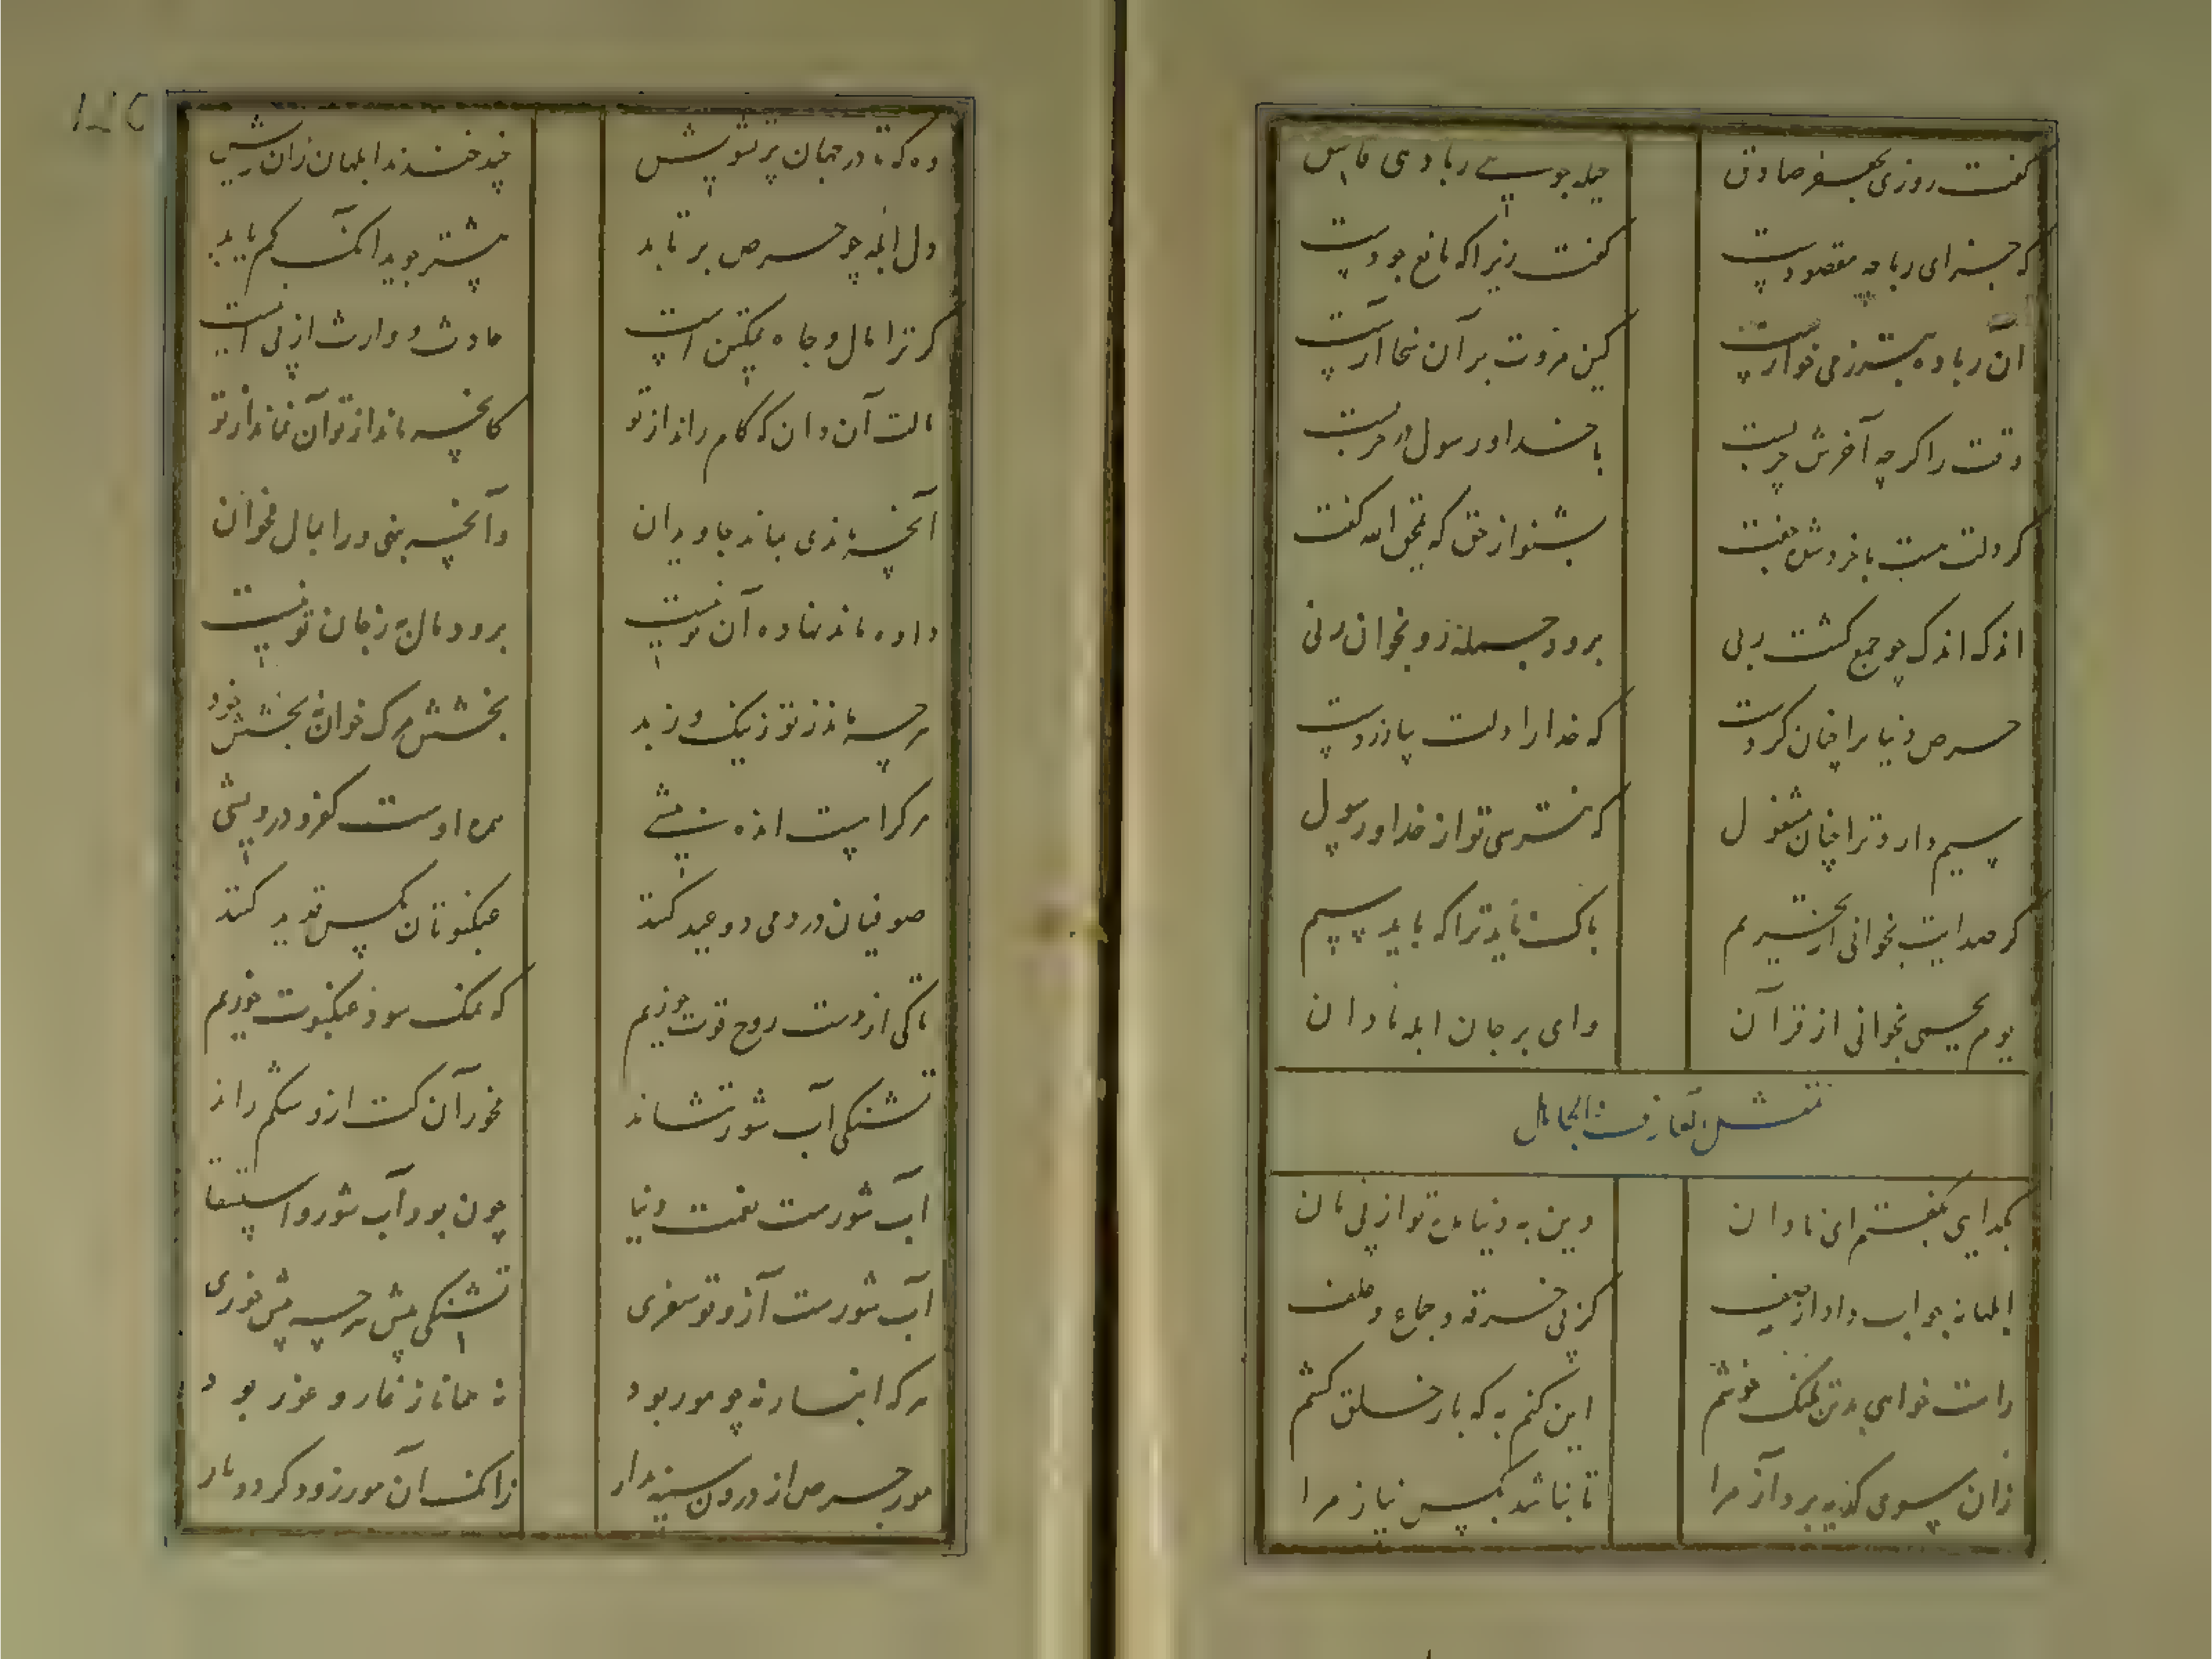 گفت روزی بجعفر صادق حیله جویی ربا دهی فاسق
کز حرامی ربا چه مقصودست گفت زیرا که مانع جودست
آن ربا ده بتر ز می خوارست کین مروت بر آن سخا آرست
وقت را گر چه آخرش حربست با خدا و رسول در حربست
گر دلت هست با خرد شده جفت بشنو از حق که یمحق الله گفت
اندک اندک چو جمع گشت ربی برود جمله زو بخوان ربی
حرص دنیا ترا چنان کردست که خدا را دلت بیازردست
سیم دارد ترا چنان مشغول که نترسی تو از خدا و رسول
گر صد آیت بخوانی از تحریم باک ناید ترا که باید سیم
یوم یحمی بخوانی از قرآن وای بر جان ابله نادان
تمثل العارف
بگدایی بگفتم ای نادان دین به دنیا مده تو از پی نان
ابلهانه جواب داد از صف کز پی خرقه و جماع و علف
راست خواهی بدین تلنگ خوشم این کنم به که بار خلق کشم
زان سوی کدیه برد آز مرا تا نباشد بکس نیاز مرا
ده که تا در جهان پر تشویش چند خندند ابلهان زان ریش
دل ابله چو حرص برتابد بیشتر جوید آنک کم یابد
گر ترا مال و جاه و تمکین است حادث و وارث از پی این است
مالت آن دان که کام راند از تو کانچه ماند از تو آن نماند از تو
آنچه دادی بماند جاویدان وانچه بنهی ورا بمال مخوان
داده ماند نهاده آن تو نیست برو و مال به ز جان تو نیست
هرچه ماند ز تو ز نیک و ز بد بخشش مرگ خوان نه بخشش خود
هر کرا هست انده بیشی همره اوست کفر و درویشی
صوفیان در دمی دو عید کنند عنکبوتان مگس قدید کنند
ما که از دست روح قوت خوریم که نمک سود عنکبوت خوریم
تشنگی آب شور ننشاند مخور آن کت ازو شکم راند
آب شورست نعمت دنیا چون بود آب شور و استسقا
آب شورست آز و تو سفری تشنگی بیش هرچه بیش خوری
هر که انبارنه چو مور بود نه همانا ز نمار و عور بود
مور حرص از درون سینه برآر زانک آن مور زود گردد مار